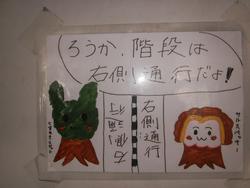 ろうか、階段は
右側通行だよ!
右側通行
右側通行